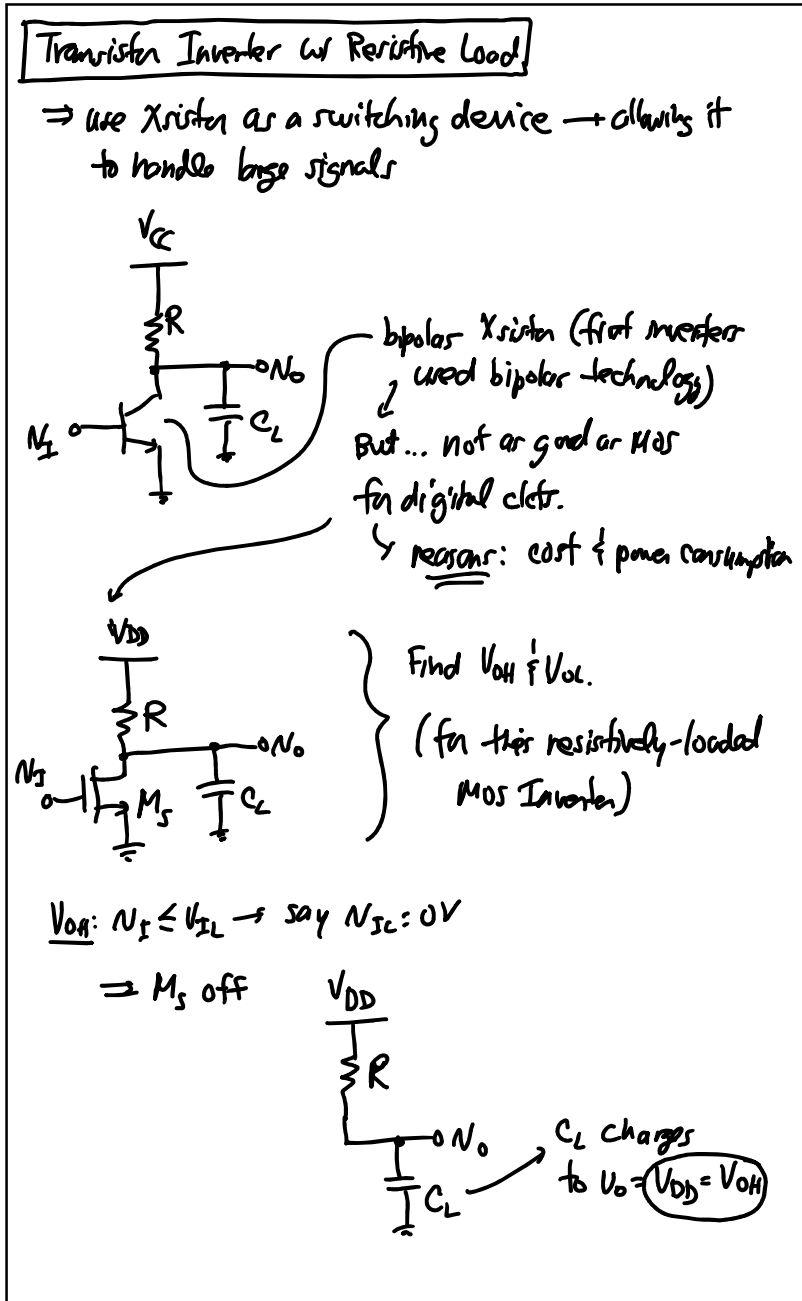 Transistor Inverter w/ Resistive Load
⇒ use Xsistor as a switching device → allowing it
to handle large signals
V_CC
R
v_O
C_L
v_I
bipolar Xsistor (first inverters
used bipolar technology)
But... not as good as MOS
for digital ckts.
↳ reasons: cost & power consumption
V_DD
R
v_O
v_I
M_S
C_L
Find V_OH & V_OL.
(for this resistively-loaded
MOS Inverter)
V_OH: v_I ≤ V_IL → say v_IL = 0V
⇒ M_S off
V_DD
R
v_O
C_L
C_L charges
to v_O = V_DD = V_OH